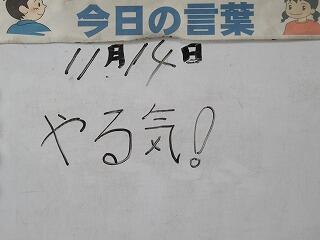 今日の言葉
11月14日
やる気!